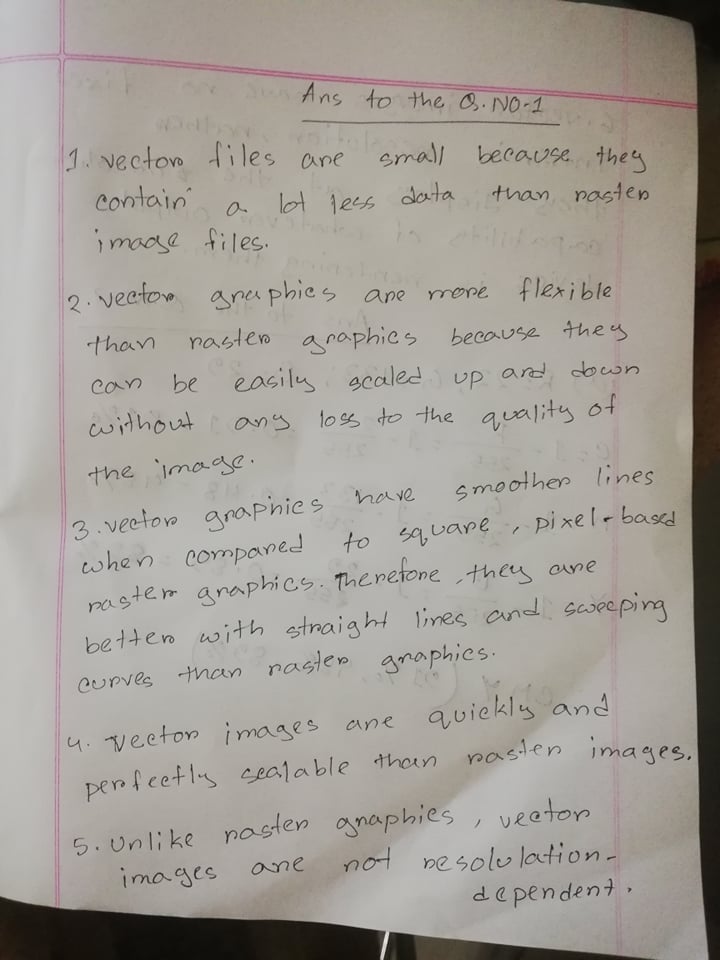 Ans to the Q.NO-1
1. vector files are small because they
contain a lot less data than raster
image files.
2. vector graphics are more flexible
than raster graphics because they
can be easily scaled up and down
without any loss to the quality of
the image.
3. vector graphics have smoother lines
when compared to square, pixel-based
raster graphics. Therefore, they are
better with straight lines and sweeping
curves than raster graphics.
4. vector images are quickly and
perfectly scalable than raster images.
5. Unlike raster graphics, vector
images are not resolulation-
dependent.